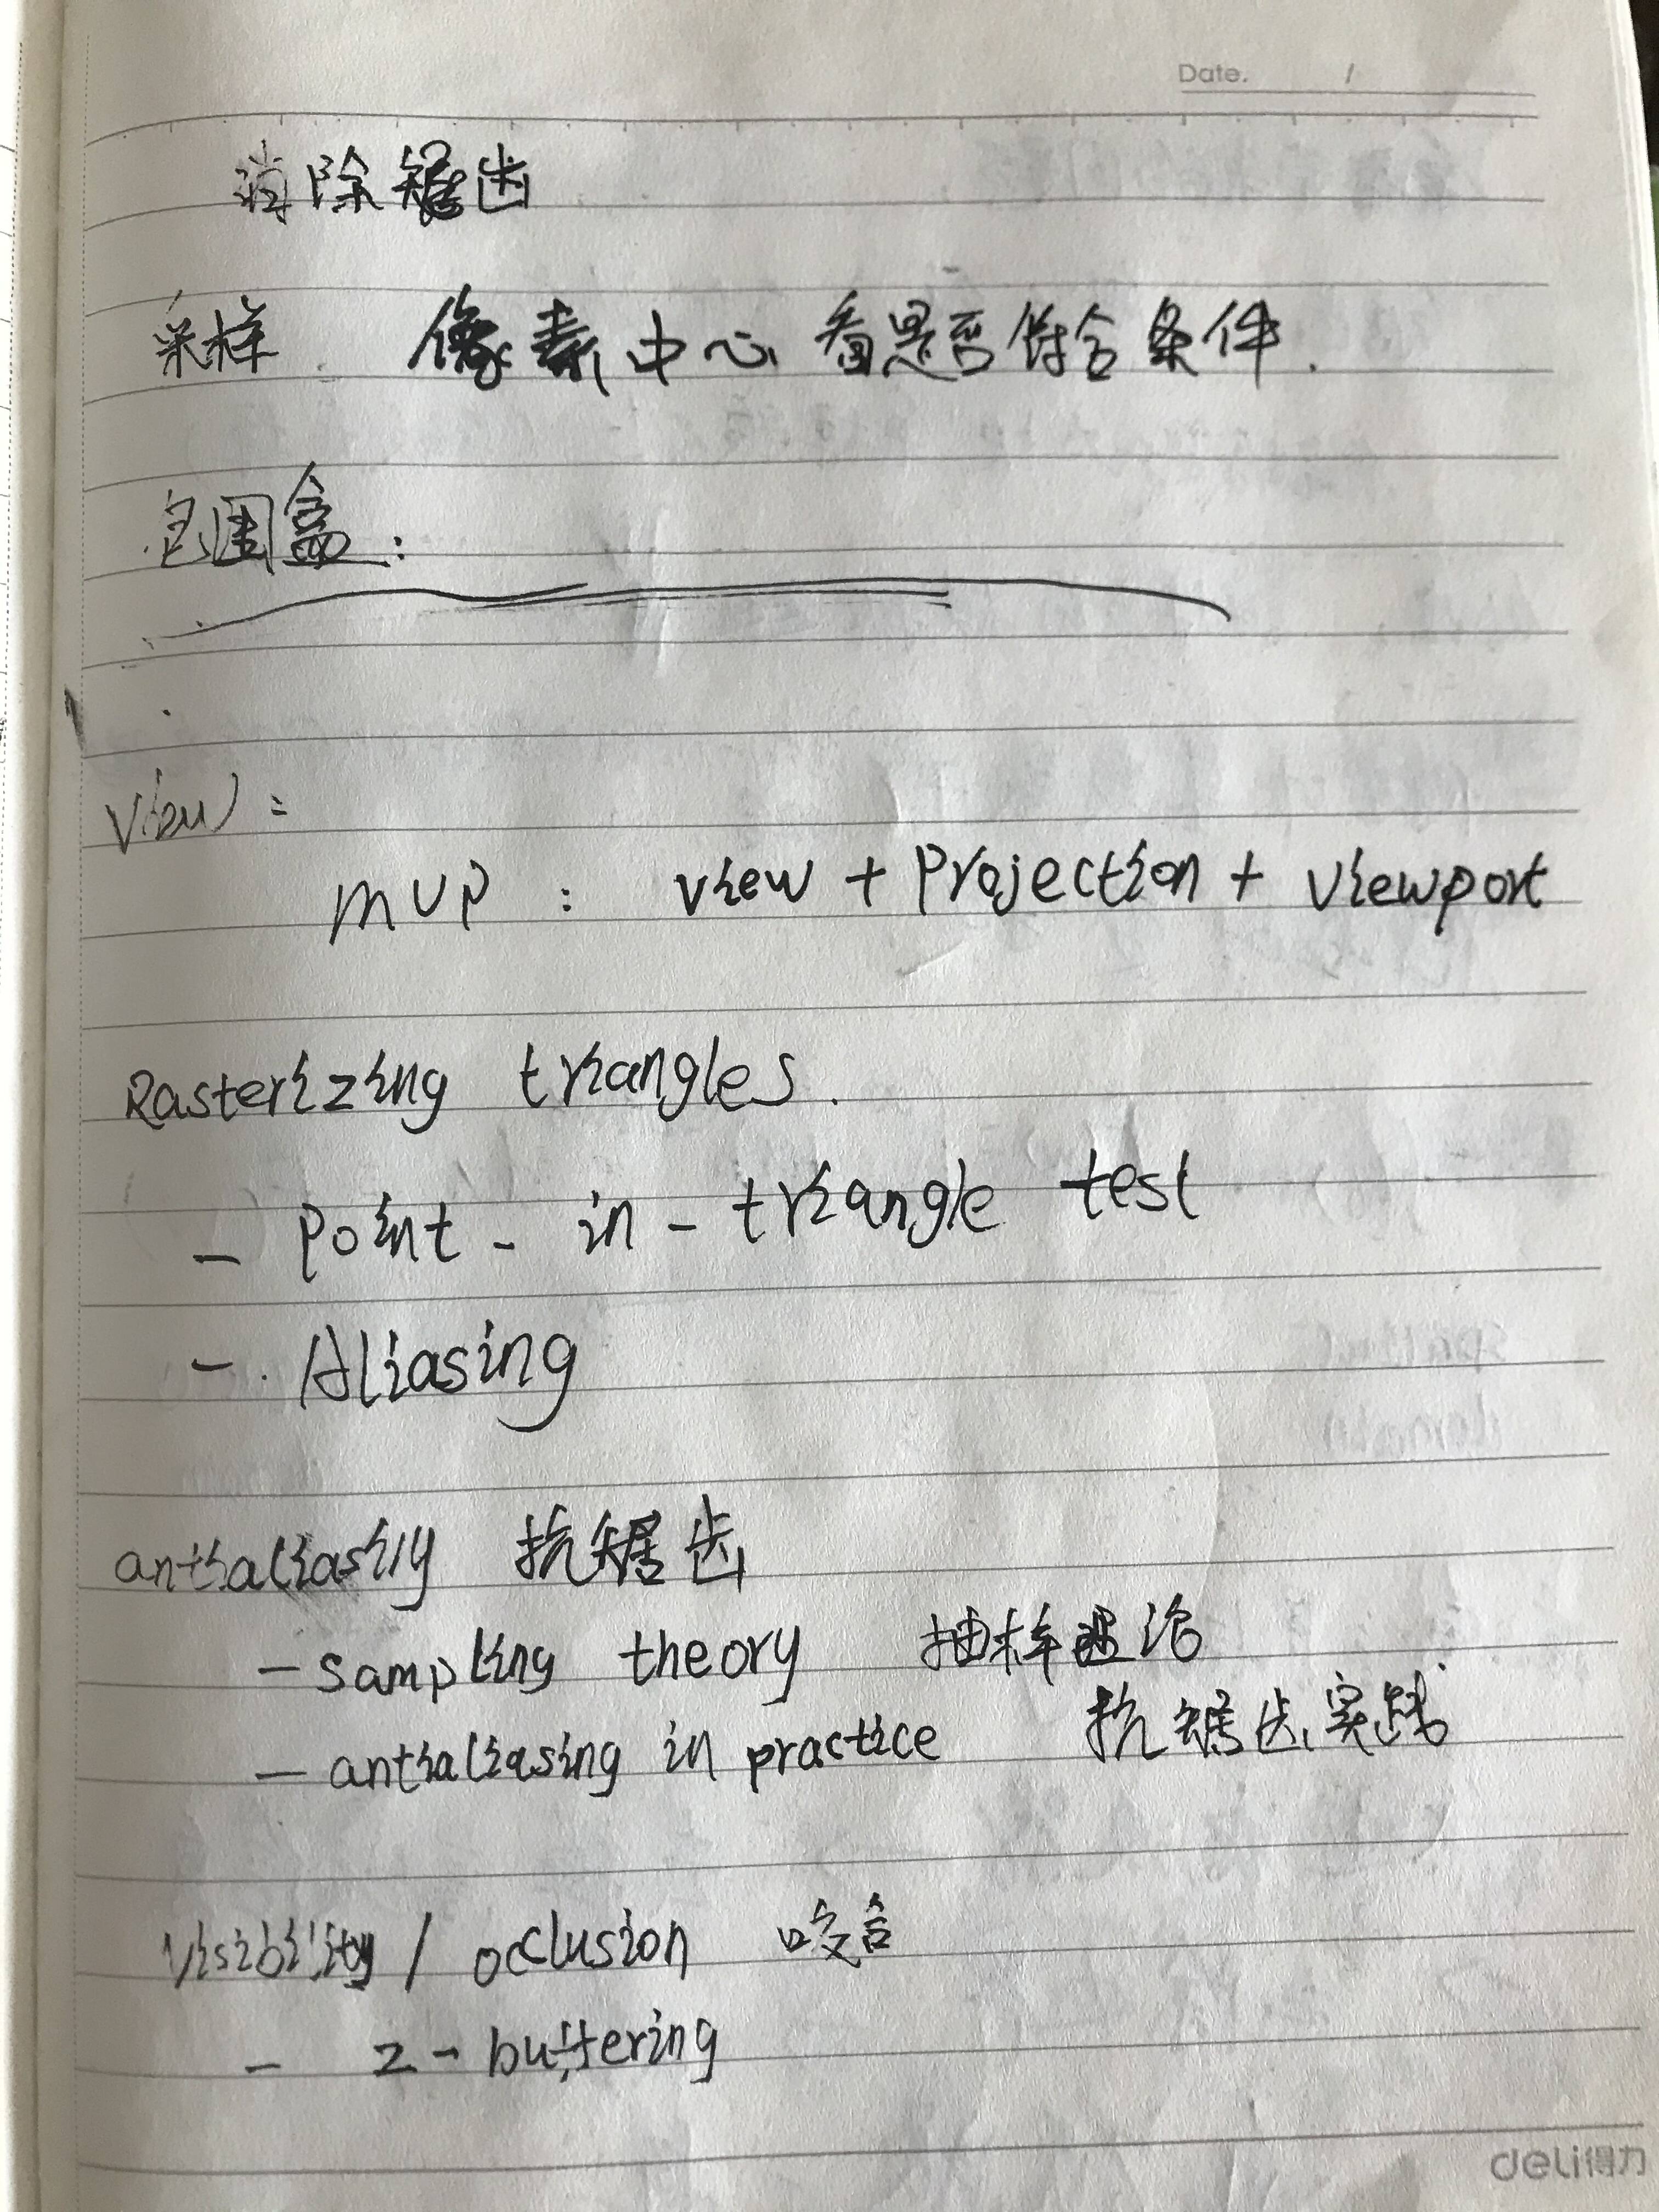 Date. /
消除锯齿
采样 像素中心看是否符合条件.
包围盒:
View:
MVP : view + Projection + viewport
Rasterizing triangles.
- Point - in - triangle test
- Aliasing
antialiasing 抗锯齿
- sampling theory 抽样理论
- antialiasing in practice 抗锯齿实践
Visibility / occlusion 咬合
- z - buffering
deli得力